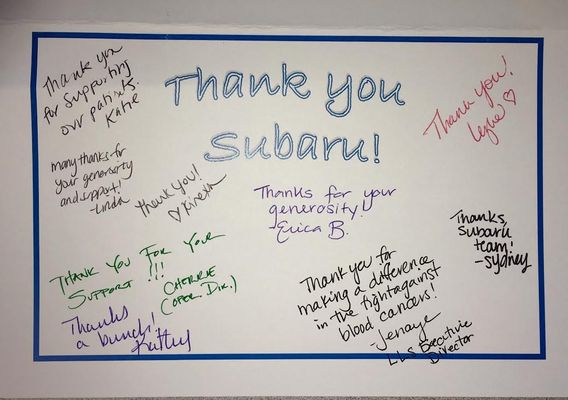 Thank you
Subaru!
Thank you
for supporting
our patients.
Katie
Thank you!
many thanks for
your generosity
and support!
-Linda
Thank you!
Thanks for your
generosity!
-Erica B.
Thanks,
Subaru
team!
-Sydney
THANK YOU FOR YOUR
SUPPORT !!!
CHERRIE
(OPER. DIR.)
Thank you for
making a difference
in the fight against
blood cancers!
-Jenaye
LLS Executive
Director
Thanks
a bunch!